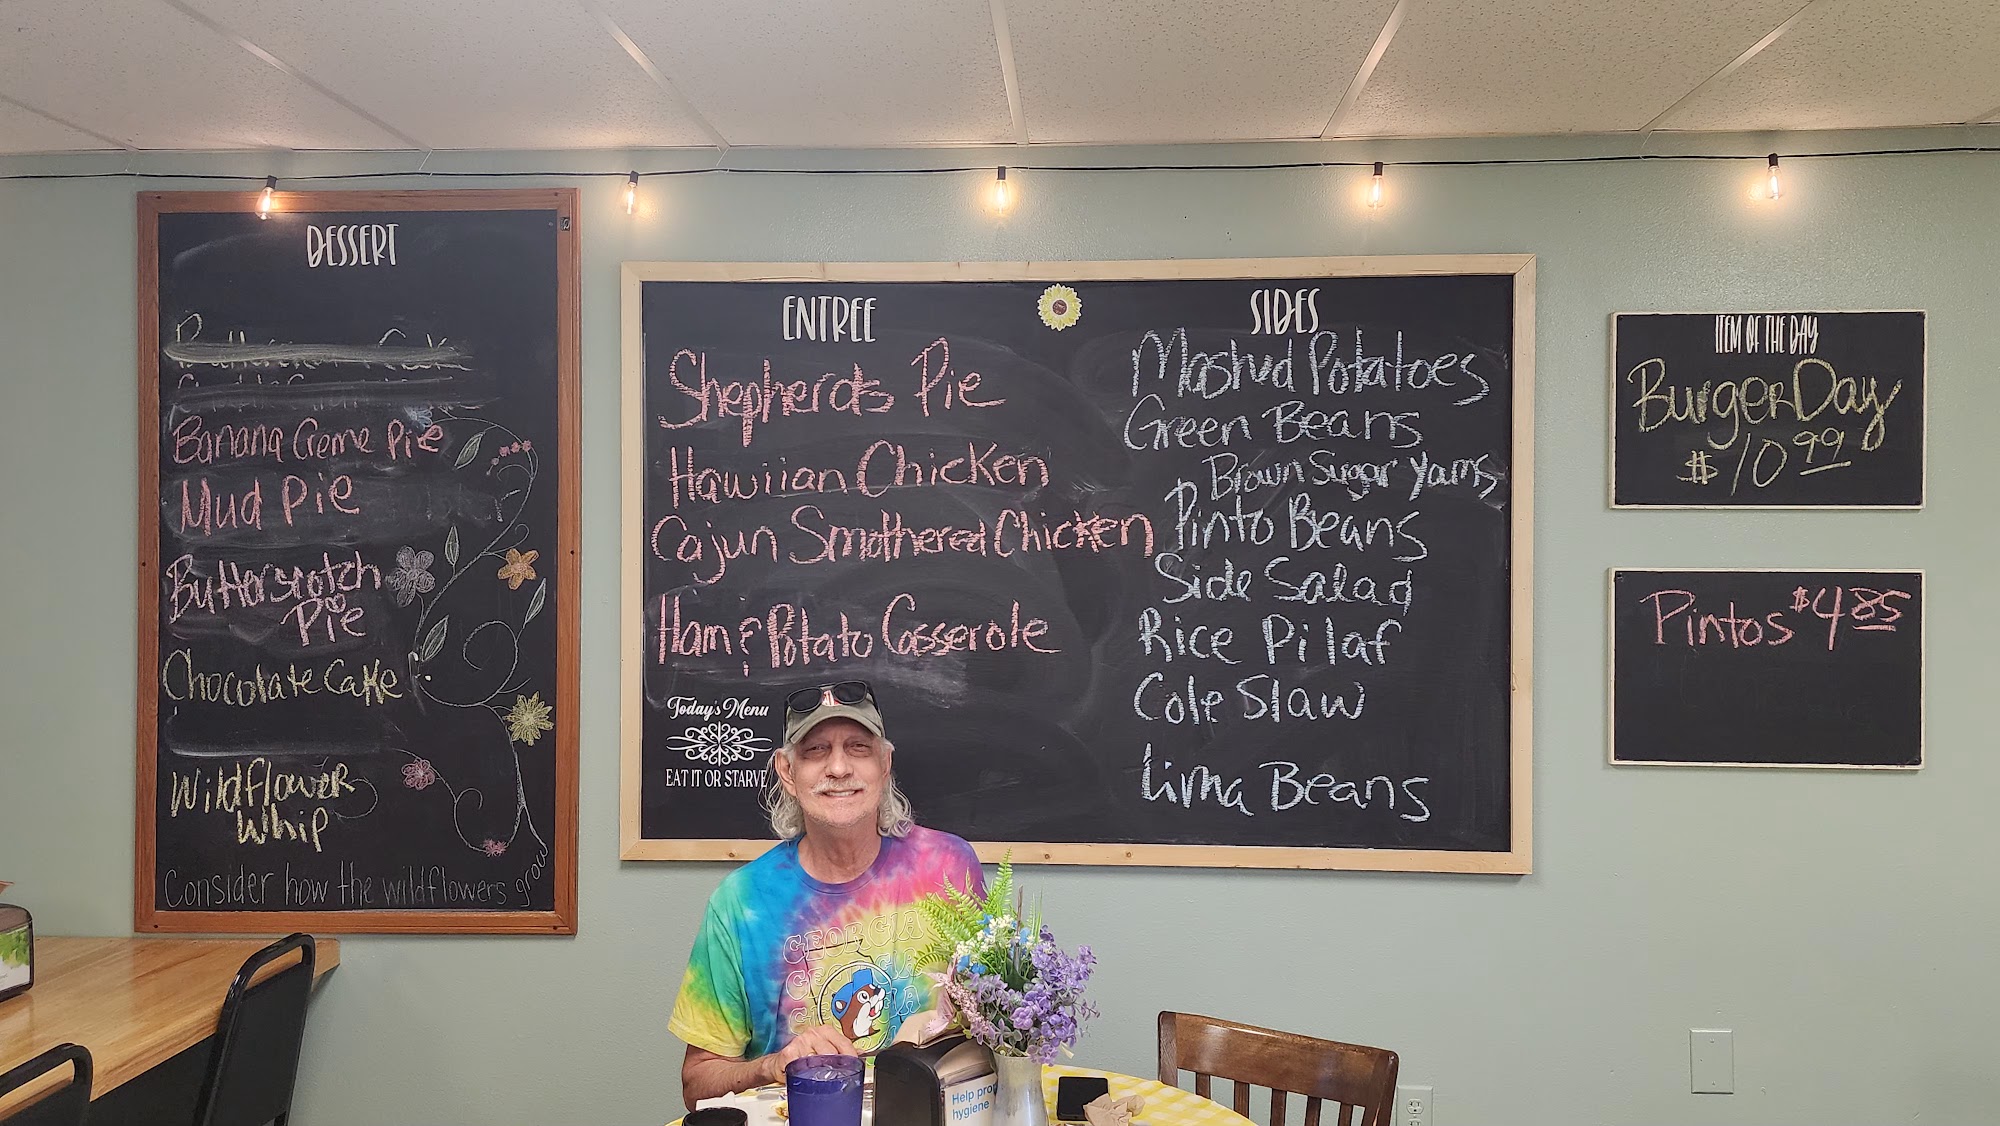 DESSERT
Banana Creme Pie
Mud Pie
Butterscotch
Pie
Chocolate Cake
Wildflower
Whip
Consider how the wildflowers grow
ENTREE
Shepherds Pie
Hawiian Chicken
Cajun Smothered Chicken
Ham & Potato Casserole
Today's Menu
EAT IT OR STARVE
SIDES
Mashed Potatoes
Green Beans
Brown Sugar Yams
Pinto Beans
Side Salad
Rice Pilaf
Cole Slaw
Lima Beans
ITEM OF THE DAY
Burger Day
$10.99
Pintos $4.85
GEORGIA
GEORGIA
Help
hygiene